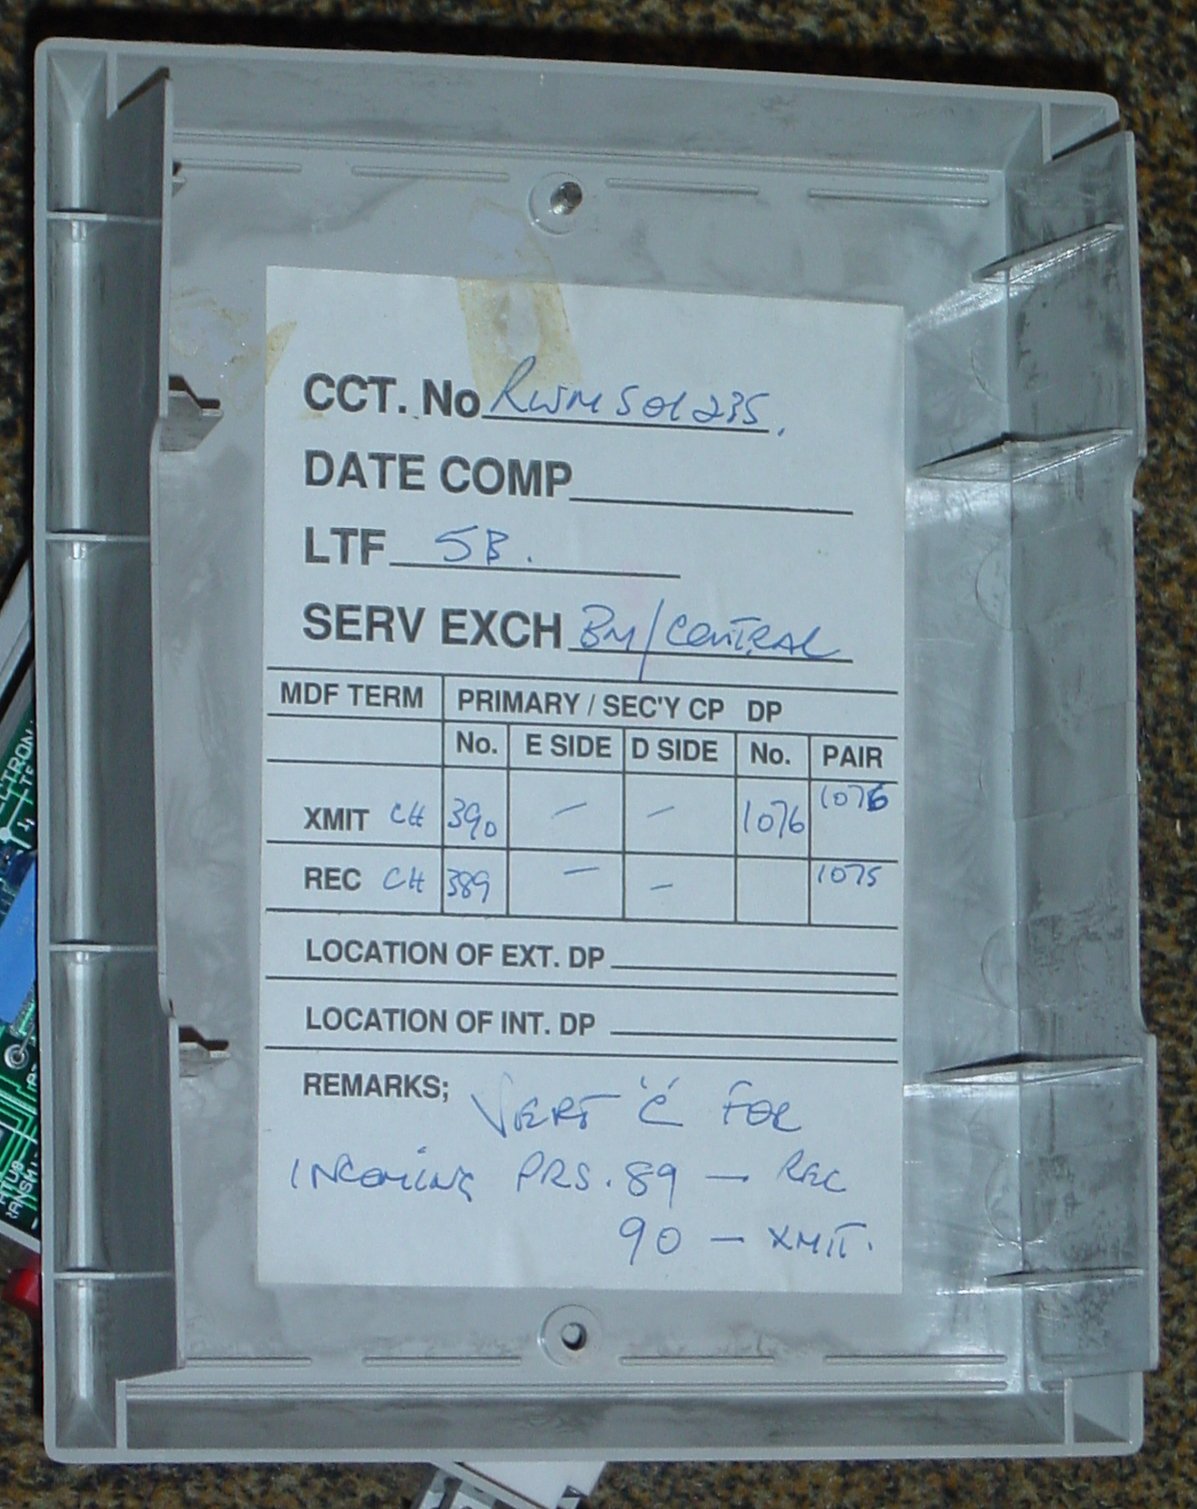 CCT. No RWM 501235.
DATE COMP
LTF 5B.
SERV EXCH BM/CENTRAL
MDF TERM PRIMARY / SEC'Y CP DP
No. E SIDE D SIDE No. PAIR
XMIT CH 390 — — 1076 1076
REC CH 389 — — 1075
LOCATION OF EXT. DP
LOCATION OF INT. DP
REMARKS; VERT 'C' FOR
INCOMING PRS. 89 — REC
90 — XMIT.